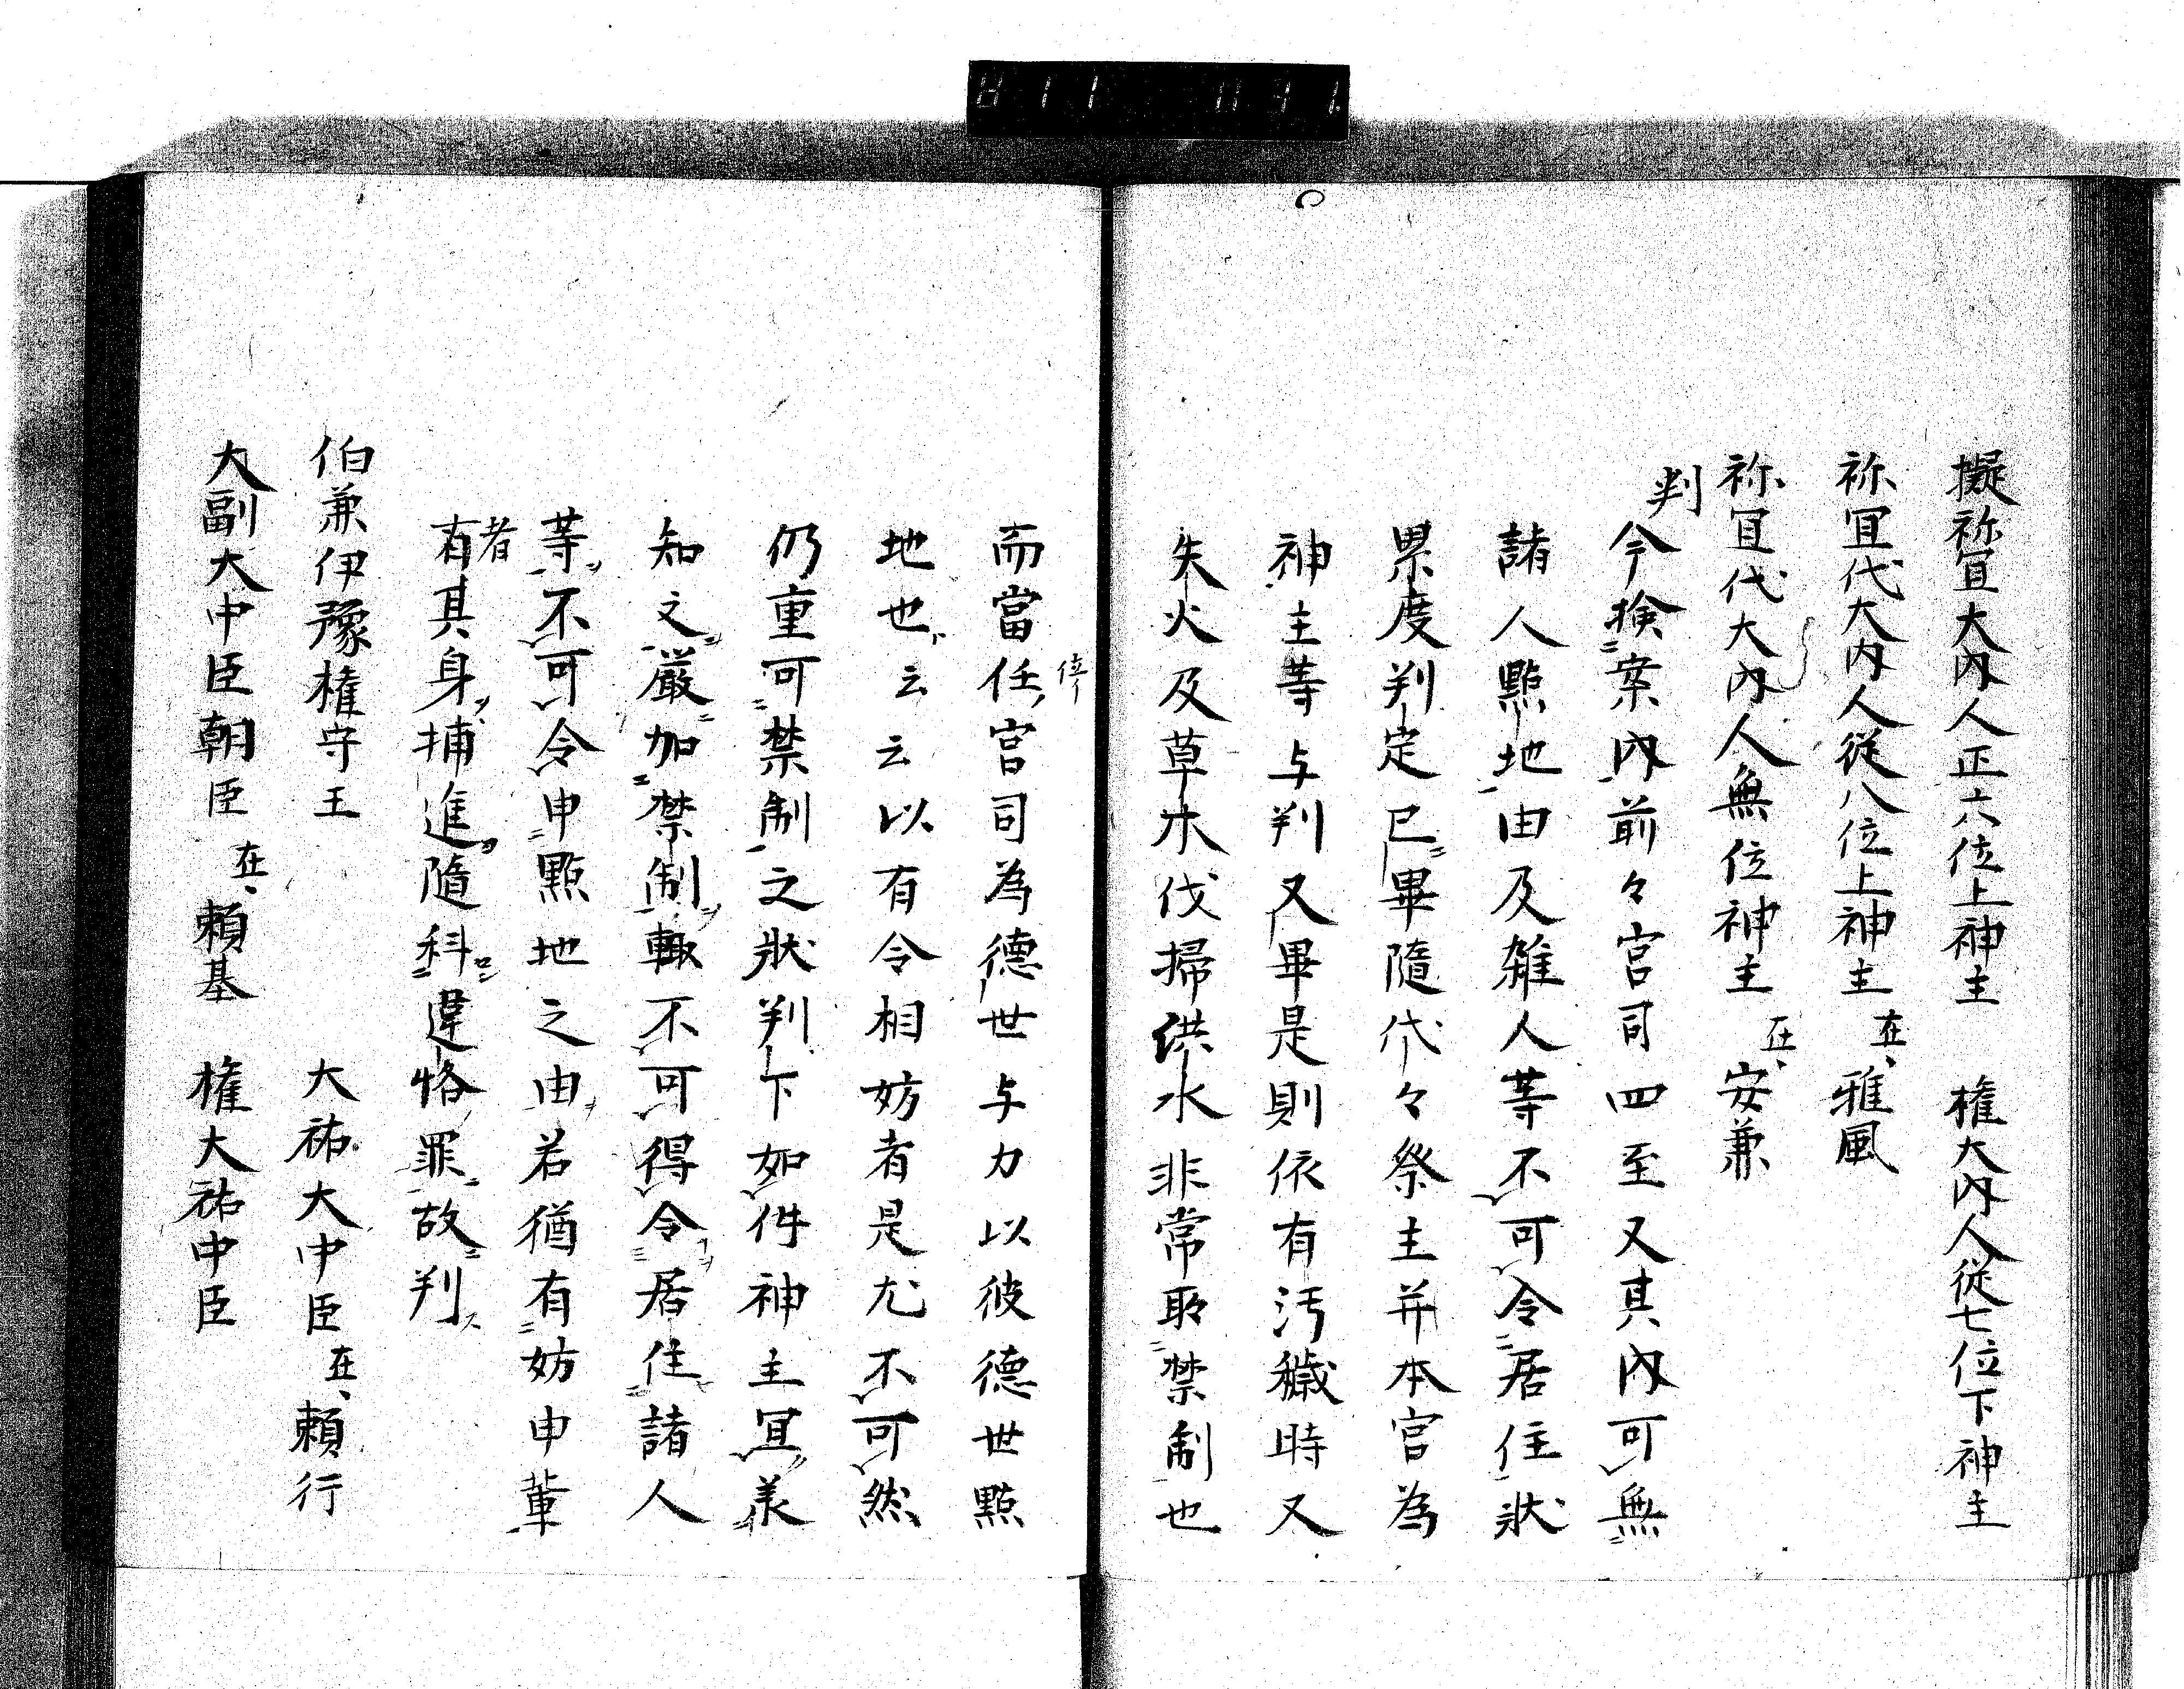 擬祢冝大内人正六位上神主　権大内人従七位下神主
祢冝代大内人従八位上神主在、雅風
祢冝代大内人無位神主在、安兼
判
今捡案内前々宮司四至又其内可無
諸人點地由及雑人等不可令居住状
累度判定已畢隨代々祭主并本官為
神主等与判又畢是則依有汚穢時又
失火及草木伐掃供水非常取禁制也
而當任宮司為德世与力以彼德世點
地也云云以有令相妨者是尤不可然
仍重可禁制之狀判下如件神主冝羕
知之嚴加禁制輙不可得令居住諸人
等不可令申點地之由若猶有妨申輩
者
有其身捕進隨科違格罪故判
伯兼伊豫権守王　大祐大中臣在、頼行
大副大中臣朝臣在、頼基　権大祐中臣